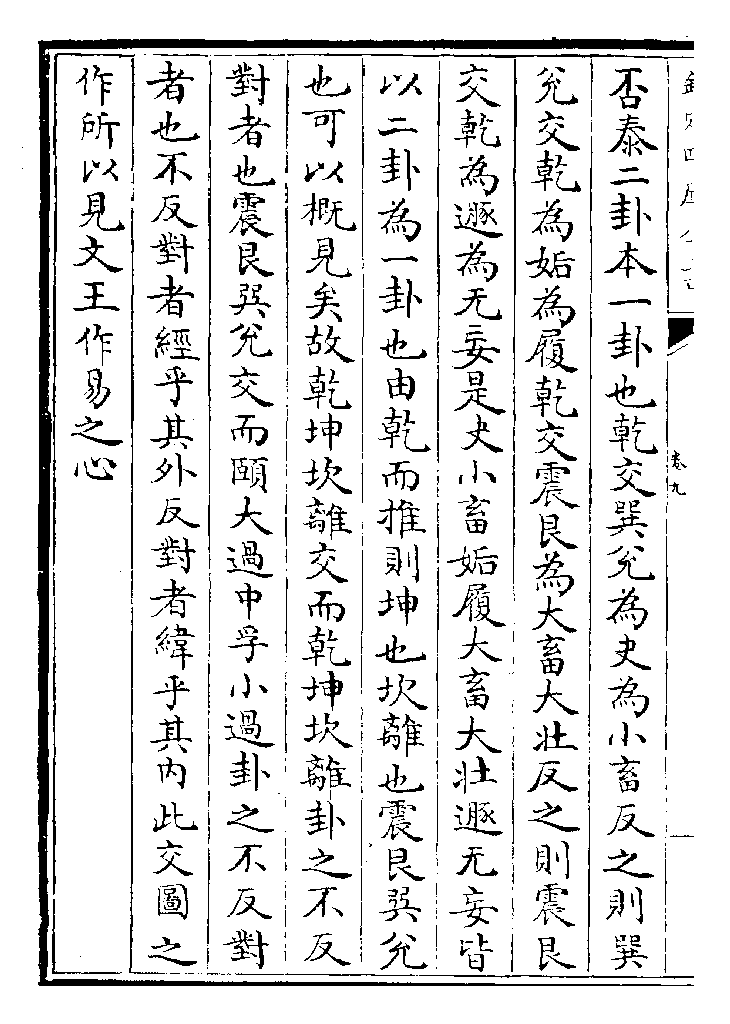 欽定四庫全書
卷九
否泰二卦本一卦也乾交巽兊為夬為小畜反之則巽
兊交乾為姤為履乾交震艮為大畜大壯反之則震艮
交乾為遯為无妄是夬小畜姤履大畜大壯遯无妄皆
以二卦為一卦也由乾而推則坤也坎離也震艮巽兊
也可以概見矣故乾坤坎離交而乾坤坎離卦之不反
對者也震艮巽兊交而頤大過中孚小過卦之不反對
者也不反對者經乎其外反對者緯乎其内此交圖之
作所以見文王作易之心